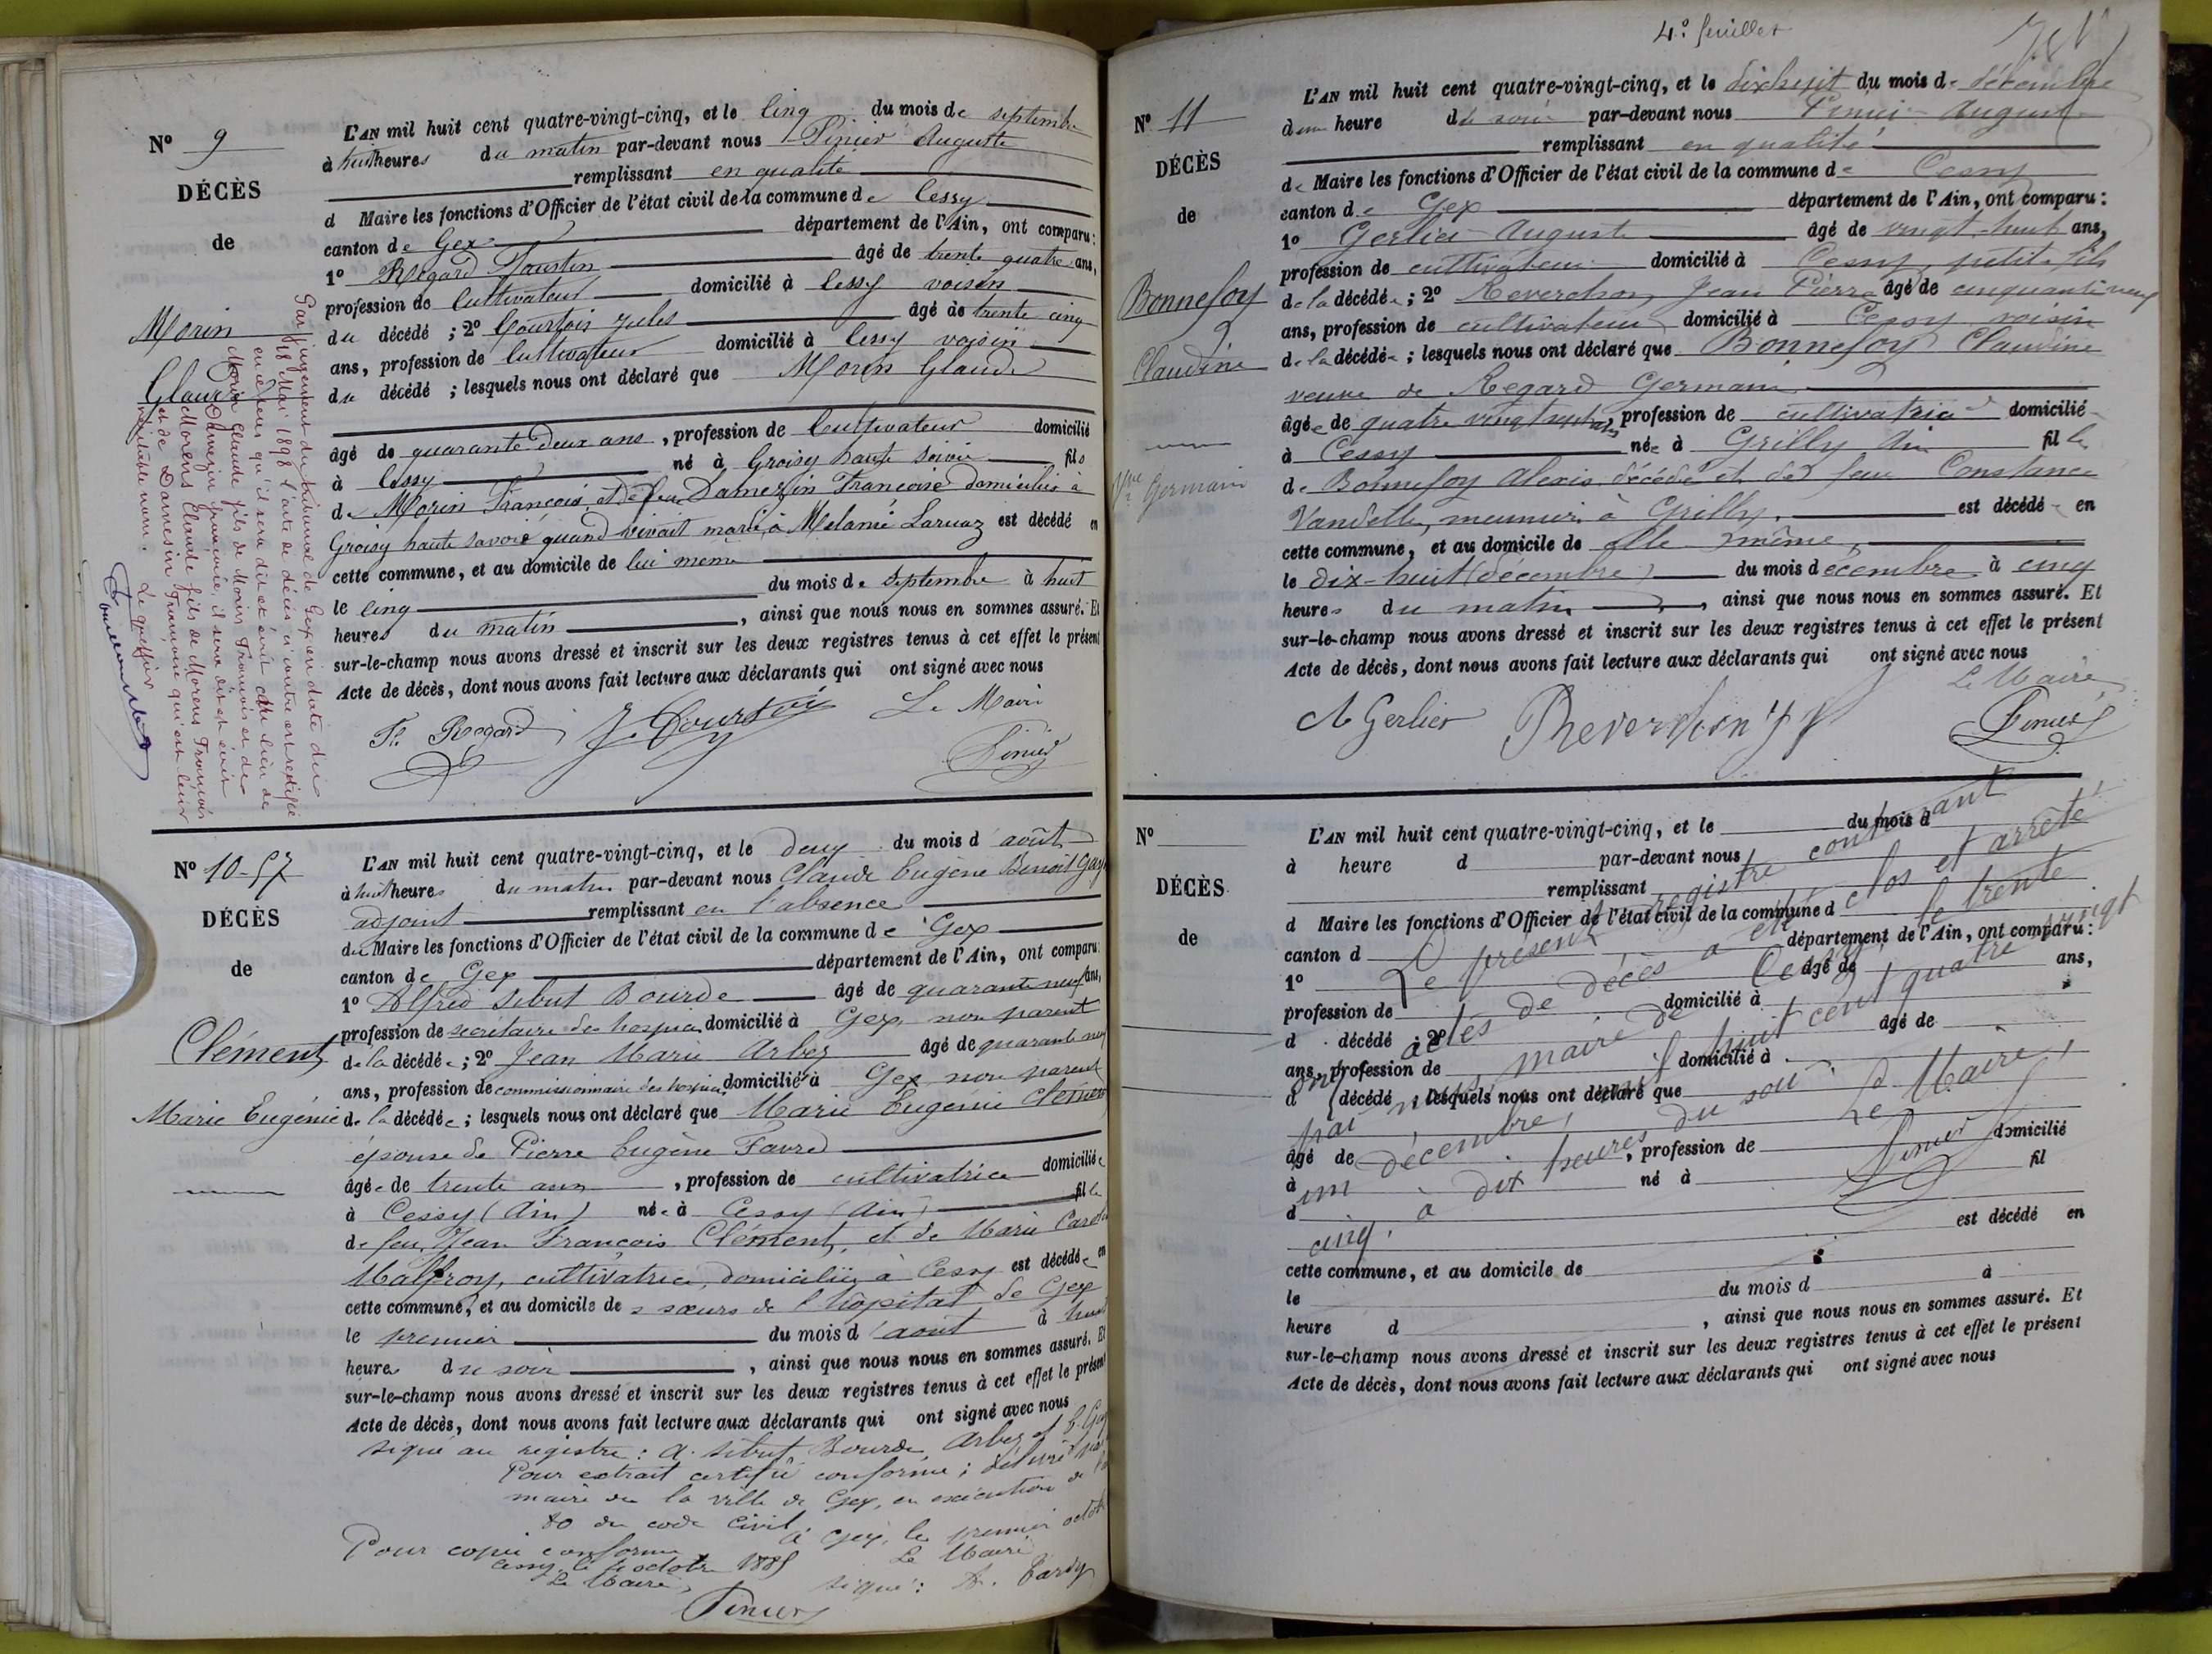 N° 9
DÉCÈS
de
Morin
Claude
L'AN mil huit cent quatre-vingt-cinq, et le cinq du mois de septembre
à huit heures du matin par-devant nous Pinier Auguste
remplissant en qualité
d Maire les fonctions d'Officier de l'état civil de la commune de Cessy
canton de Gex département de l'Ain, ont comparu:
1° Regard Faustin âgé de trente quatre ans,
profession de Cultivateur domicilié à Cessy voisin
du décédé ; 2° Courtois Jules âgé de trente cinq
ans, profession de Cultivateur domicilié à Cessy voisin
du décédé ; lesquels nous ont déclaré que Morin Claude
âgé de quarante-deux ans, profession de Cultivateur domicilié
à Cessy né à Groisy haute Savoie fils
de Morin François, et de feue Damezin Françoise domiciliés à
Groisy haute Savoie quand vivait marié à Mélanie Laruaz est décédé en
cette commune, et au domicile de lui même
le cinq du mois de septembre à huit
heures du matin, ainsi que nous nous en sommes assuré. Et
sur-le-champ nous avons dressé et inscrit sur les deux registres tenus à cet effet le présent
Acte de décès, dont nous avons fait lecture aux déclarants qui ont signé avec nous
Fs Regard J. Courtois Le Maire
Pinier
Par jugement du tribunal de Gex en date du
18 Mai 1898 l'acte de décès ci contre est rectifié
en ce sens qu'il sera dit et écrit au lieu de
Morin Claude fils de Morin François et de
Damezin Françoise, il sera dit et écrit
Morens Claude fils de Morens François
et de Damesin Françoise qui est leur
véritable nom. Le greffier
N° 10-57
DÉCÈS
de
Clément
Marie Eugénie
L'AN mil huit cent quatre-vingt-cinq, et le deux du mois d'août
à huit heures du matin par-devant nous Claude Eugène Benoit
adjoint remplissant en l'absence
du Maire les fonctions d'Officier de l'état civil de la commune de Gex
canton de Gex département de l'Ain, ont comparu:
1° Alfred Sibut Bourde âgé de quarante neuf ans,
profession de secrétaire des hospices domicilié à Gex, non parent
de la décédée; 2° Jean Marie Arbez âgé de quarante neuf
ans, profession de commissionnaire des hospices domicilié à Gex non parent
de la décédée; lesquels nous ont déclaré que Marie Eugénie Clément
épouse de Pierre Eugène Favre
âgée de trente ans, profession de cultivatrice domiciliée
à Cessy (Ain) née à Cessy (Ain) fille
de feu Jean François Clément, et de Marie
Malfroy, cultivatrice, domiciliée à Cessy est décédée en
cette commune, et au domicile des sœurs de l'hôpital de Gex
le premier du mois d'août à huit
heures du soir, ainsi que nous nous en sommes assuré. Et
sur-le-champ nous avons dressé et inscrit sur les deux registres tenus à cet effet le présent
Acte de décès, dont nous avons fait lecture aux déclarants qui ont signé avec nous
signé au registre: A. Sibut Bourde, Arbez et
Pour extrait certifié conforme; délivré
maire de la ville de Gex, en exécution de
80 du code civil,
à Gex, le premier octobre
Le Maire
signé:
Pour copie conforme
Cessy, le octobre 1885
Le Maire,
Pinier
4e feuillet
N° 11
DÉCÈS
de
Bonnefoy
Claudine
Vve Germain
L'AN mil huit cent quatre-vingt-cinq, et le dix huit du mois de décembre
d'une heure du soir par-devant nous Pinier Auguste
remplissant en qualité
de Maire les fonctions d'Officier de l'état civil de la commune de Cessy
canton de Gex département de l'Ain, ont comparu:
1° Gerlier Auguste âgé de vingt-huit ans,
profession de cultivateur domicilié à Cessy, petit-fils
de la décédée; 2° Reverchon, Jean Pierre âgé de cinquante neuf
ans, profession de cultivateur domicilié à Cessy voisin
de la décédée; lesquels nous ont déclaré que Bonnefoy Claudine
veuve de Regard Germain
âgée de quatre vingt ans, profession de cultivatrice domiciliée
à Cessy née à Grilly Ain fille
de Bonnefoy Alexis décédé et de feue Constance
Vandelle, meunier à Grilly. est décédée en
cette commune, et au domicile de elle même,
le dix-huit (décembre) du mois décembre à cinq
heures du matin, ainsi que nous nous en sommes assuré. Et
sur-le-champ nous avons dressé et inscrit sur les deux registres tenus à cet effet le présent
Acte de décès, dont nous avons fait lecture aux déclarants qui ont signé avec nous
Le Maire,
A Gerlier Reverchon J P Pinier
N°
DÉCÈS
de
L'AN mil huit cent quatre-vingt-cinq, et le du mois d
à heure d par-devant nous
remplissant
d Maire les fonctions d'Officier de l'état civil de la commune d
canton d département de l'Ain, ont comparu:
1° âgé de ans,
profession de domicilié à
d décédé ; 2° âgé de
ans, profession de domicilié à
d décédé ; lesquels nous ont déclaré que
âgé de , profession de domicilié
à né à fil
d
est décédé en
cette commune, et au domicile de
le du mois d à
heure d , ainsi que nous nous en sommes assuré. Et
sur-le-champ nous avons dressé et inscrit sur les deux registres tenus à cet effet le présent
Acte de décès, dont nous avons fait lecture aux déclarants qui ont signé avec nous
Le présent registre contenant
onze actes de décès a été clos et arrêté
par nous, maire de Cessy, le trente
un décembre, mil huit cent quatre vingt
cinq, à dix heures du soir.
Le Maire,
Pinier